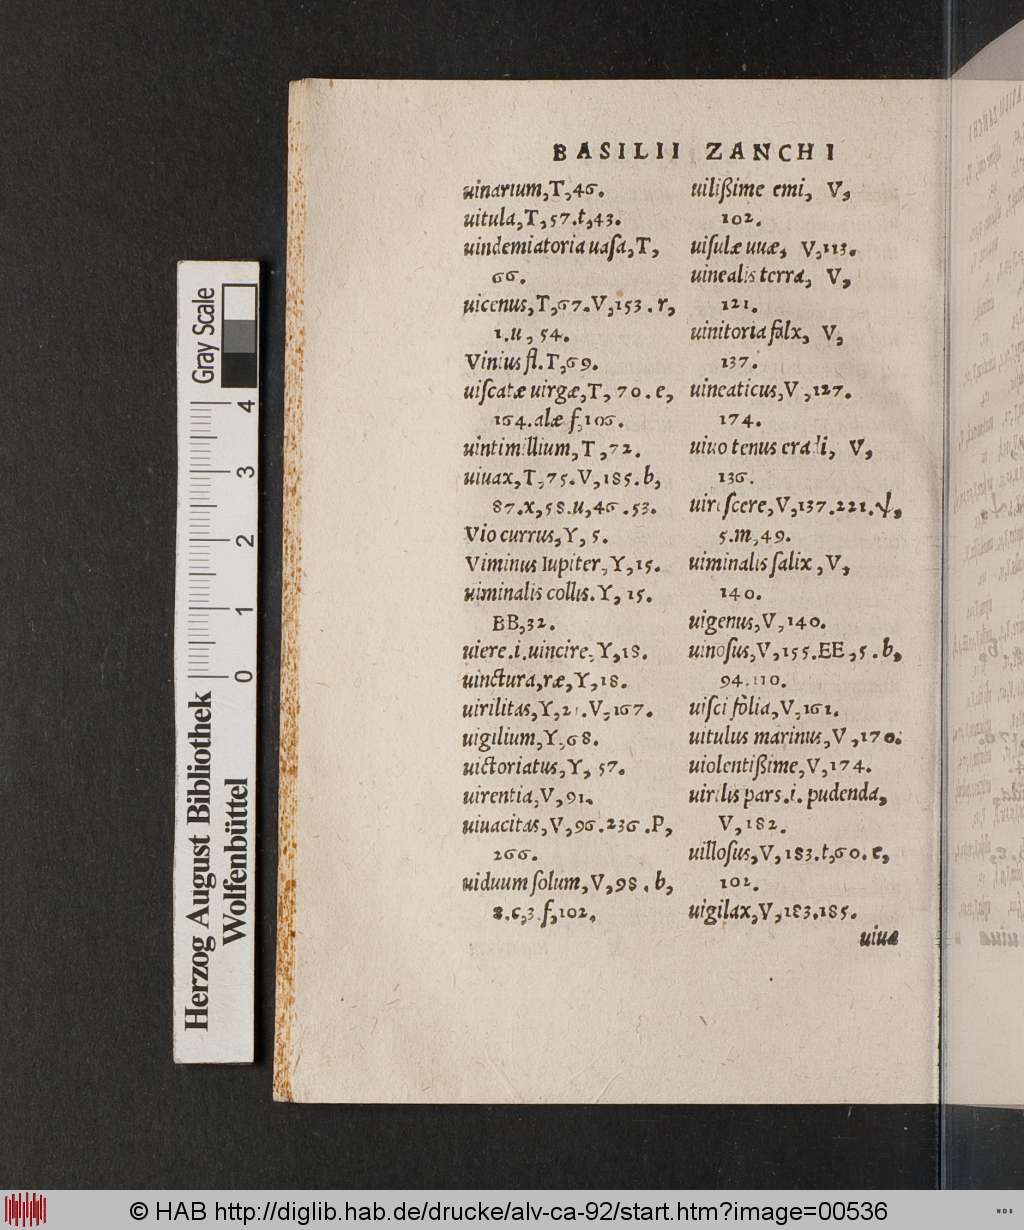 BASILII ZANCHI
uinarium,T,46.
uitula,T,57.t,43.
uindemiatoria uaſa,T,
66.
uicenus,T,67.V,153.r,
1.u,54.
Vinius fl.T,69.
uiſcatæ uirgæ,T,70.e,
164.alæ f,106.
uintimillium,T,72.
uiuax,T,75.V,185.b,
87.x,58.u,46.53.
Vio currus,Y,5.
Viminus Iupiter,Y,15.
uiminalis collis.Y,15.
BB,32.
uiere.i.uincire,Y,18.
uinctura,ræ,Y,18.
uirilitas,Y,21.V,167.
uigilium,Y,68.
uictoriatus,Y,57.
uirentia,V,91.
uiuacitas,V,96.236.P,
266.
uiduum ſolum,V,98.b,
8.c,3.f,102,
uilißime emi, V,
102.
uiſulæ uuæ, V,113.
uinealis terra, V,
121.
uinitoria falx, V,
137.
uineaticus,V,127.
174.
uiuo tenus eradi, V,
136.
uireſcere,V,137.221.ψ,
5.m,49.
uiminalis ſalix,V,
140.
uigenus,V,140.
uinoſus,V,155.EE,5.b,
94.110.
uiſci folia,V,161.
uitulus marinus,V,170.
uiolentißime,V,174.
uirilis pars.i.pudenda,
V,182.
uilloſus,V,183.t,60.e,
102.
uigilax,V,183.185.
uiua
Gray Scale
4
3
2
1
0
Herzog August Bibliothek
Wolfenbüttel
© HAB http://diglib.hab.de/drucke/alv-ca-92/start.htm?image=00536